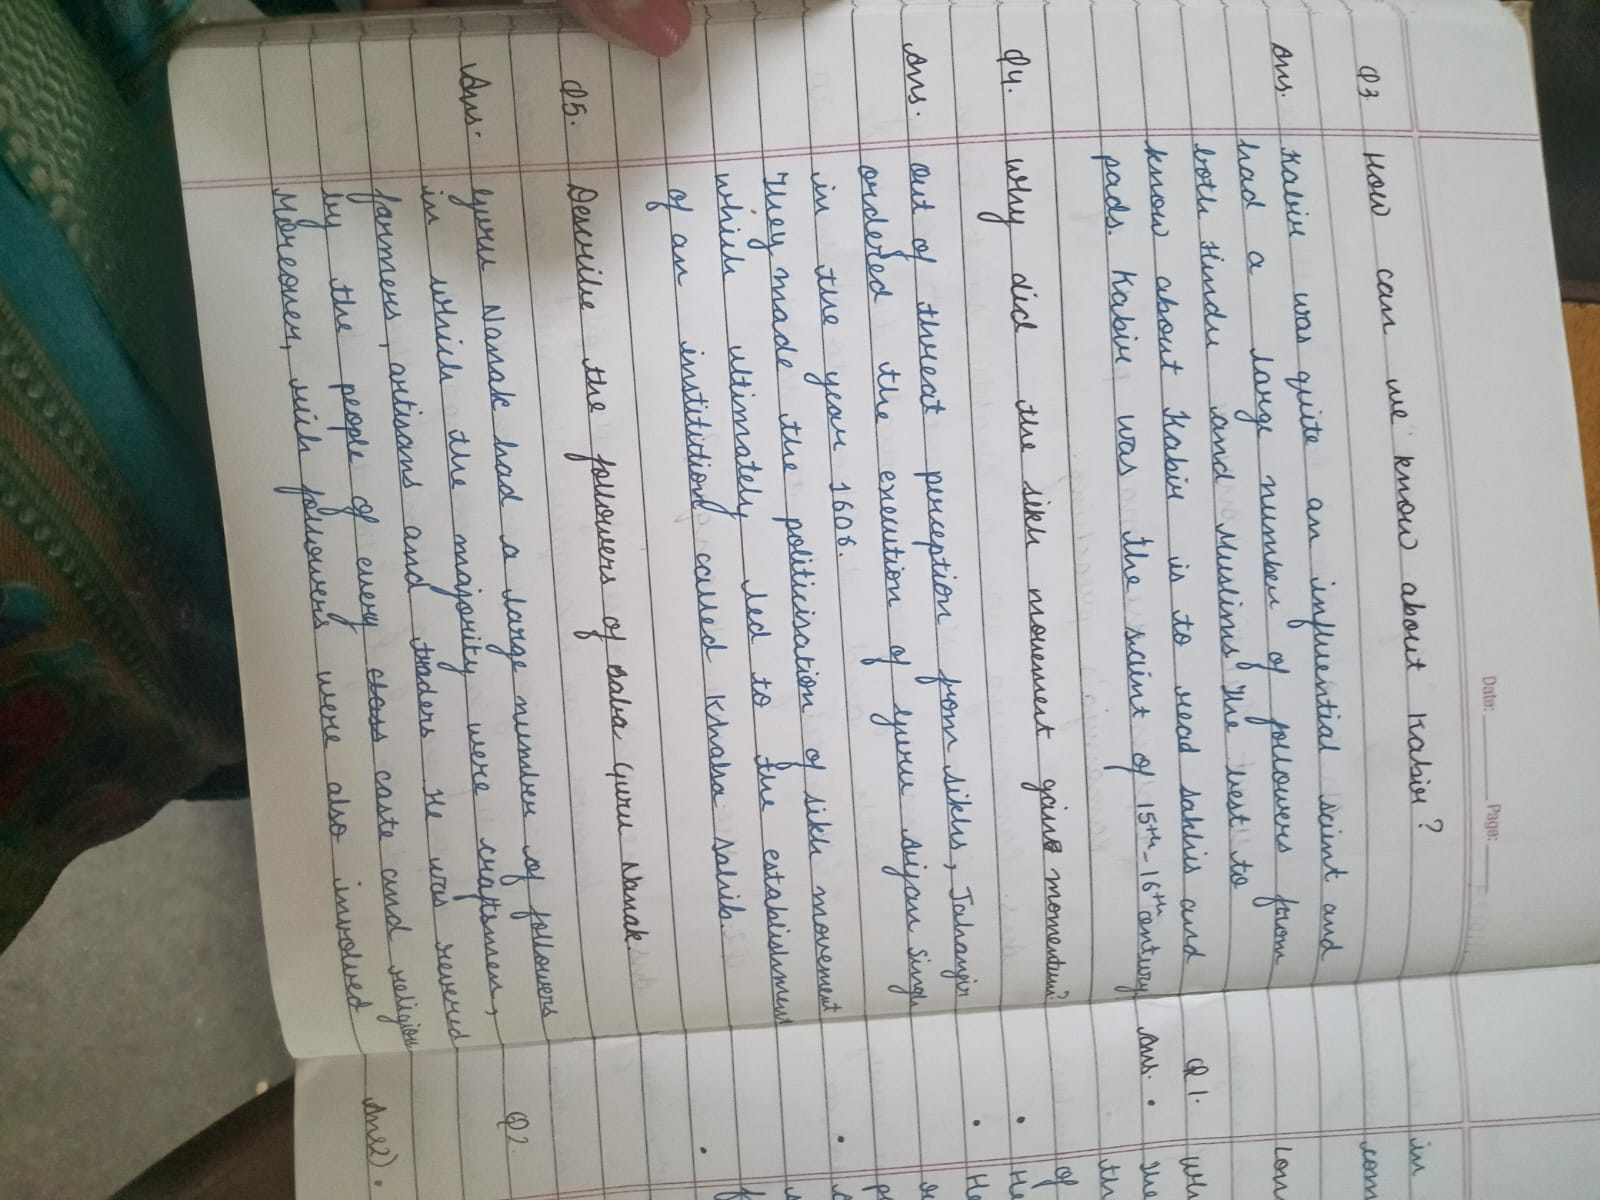 Date: Page:
Q3. How can we know about Kabir?
Ans. Kabir was quite an influential saint and
had a large number of followers from
both Hindu and Muslims. The best to
know about Kabir is to read sakhis and
pads. Kabir was the saint of 15th-16th century
Q4. Why did the sikh movement gains momentum?
Ans. Out of threat perception from sikhs, Jahangir
ordered the execution of guru Arjan Singh
in the year 1606.
They made the politicisation of sikh movement
which ultimately led to the establishment
of an institition called Khalsa Sahib.
Q5. Describe the followers of Baba Guru Nanak
Ans. Guru Nanak had a large number of followers
in which the majority were craftsmen,
farmers, artisans and traders. He was revered
by the people of every class caste and religion
Moreover, such followers were also involved
in
com
Lon
Q1. Wh
Ans. • The
th
of
• He
• He
Q2.
Ans2) •